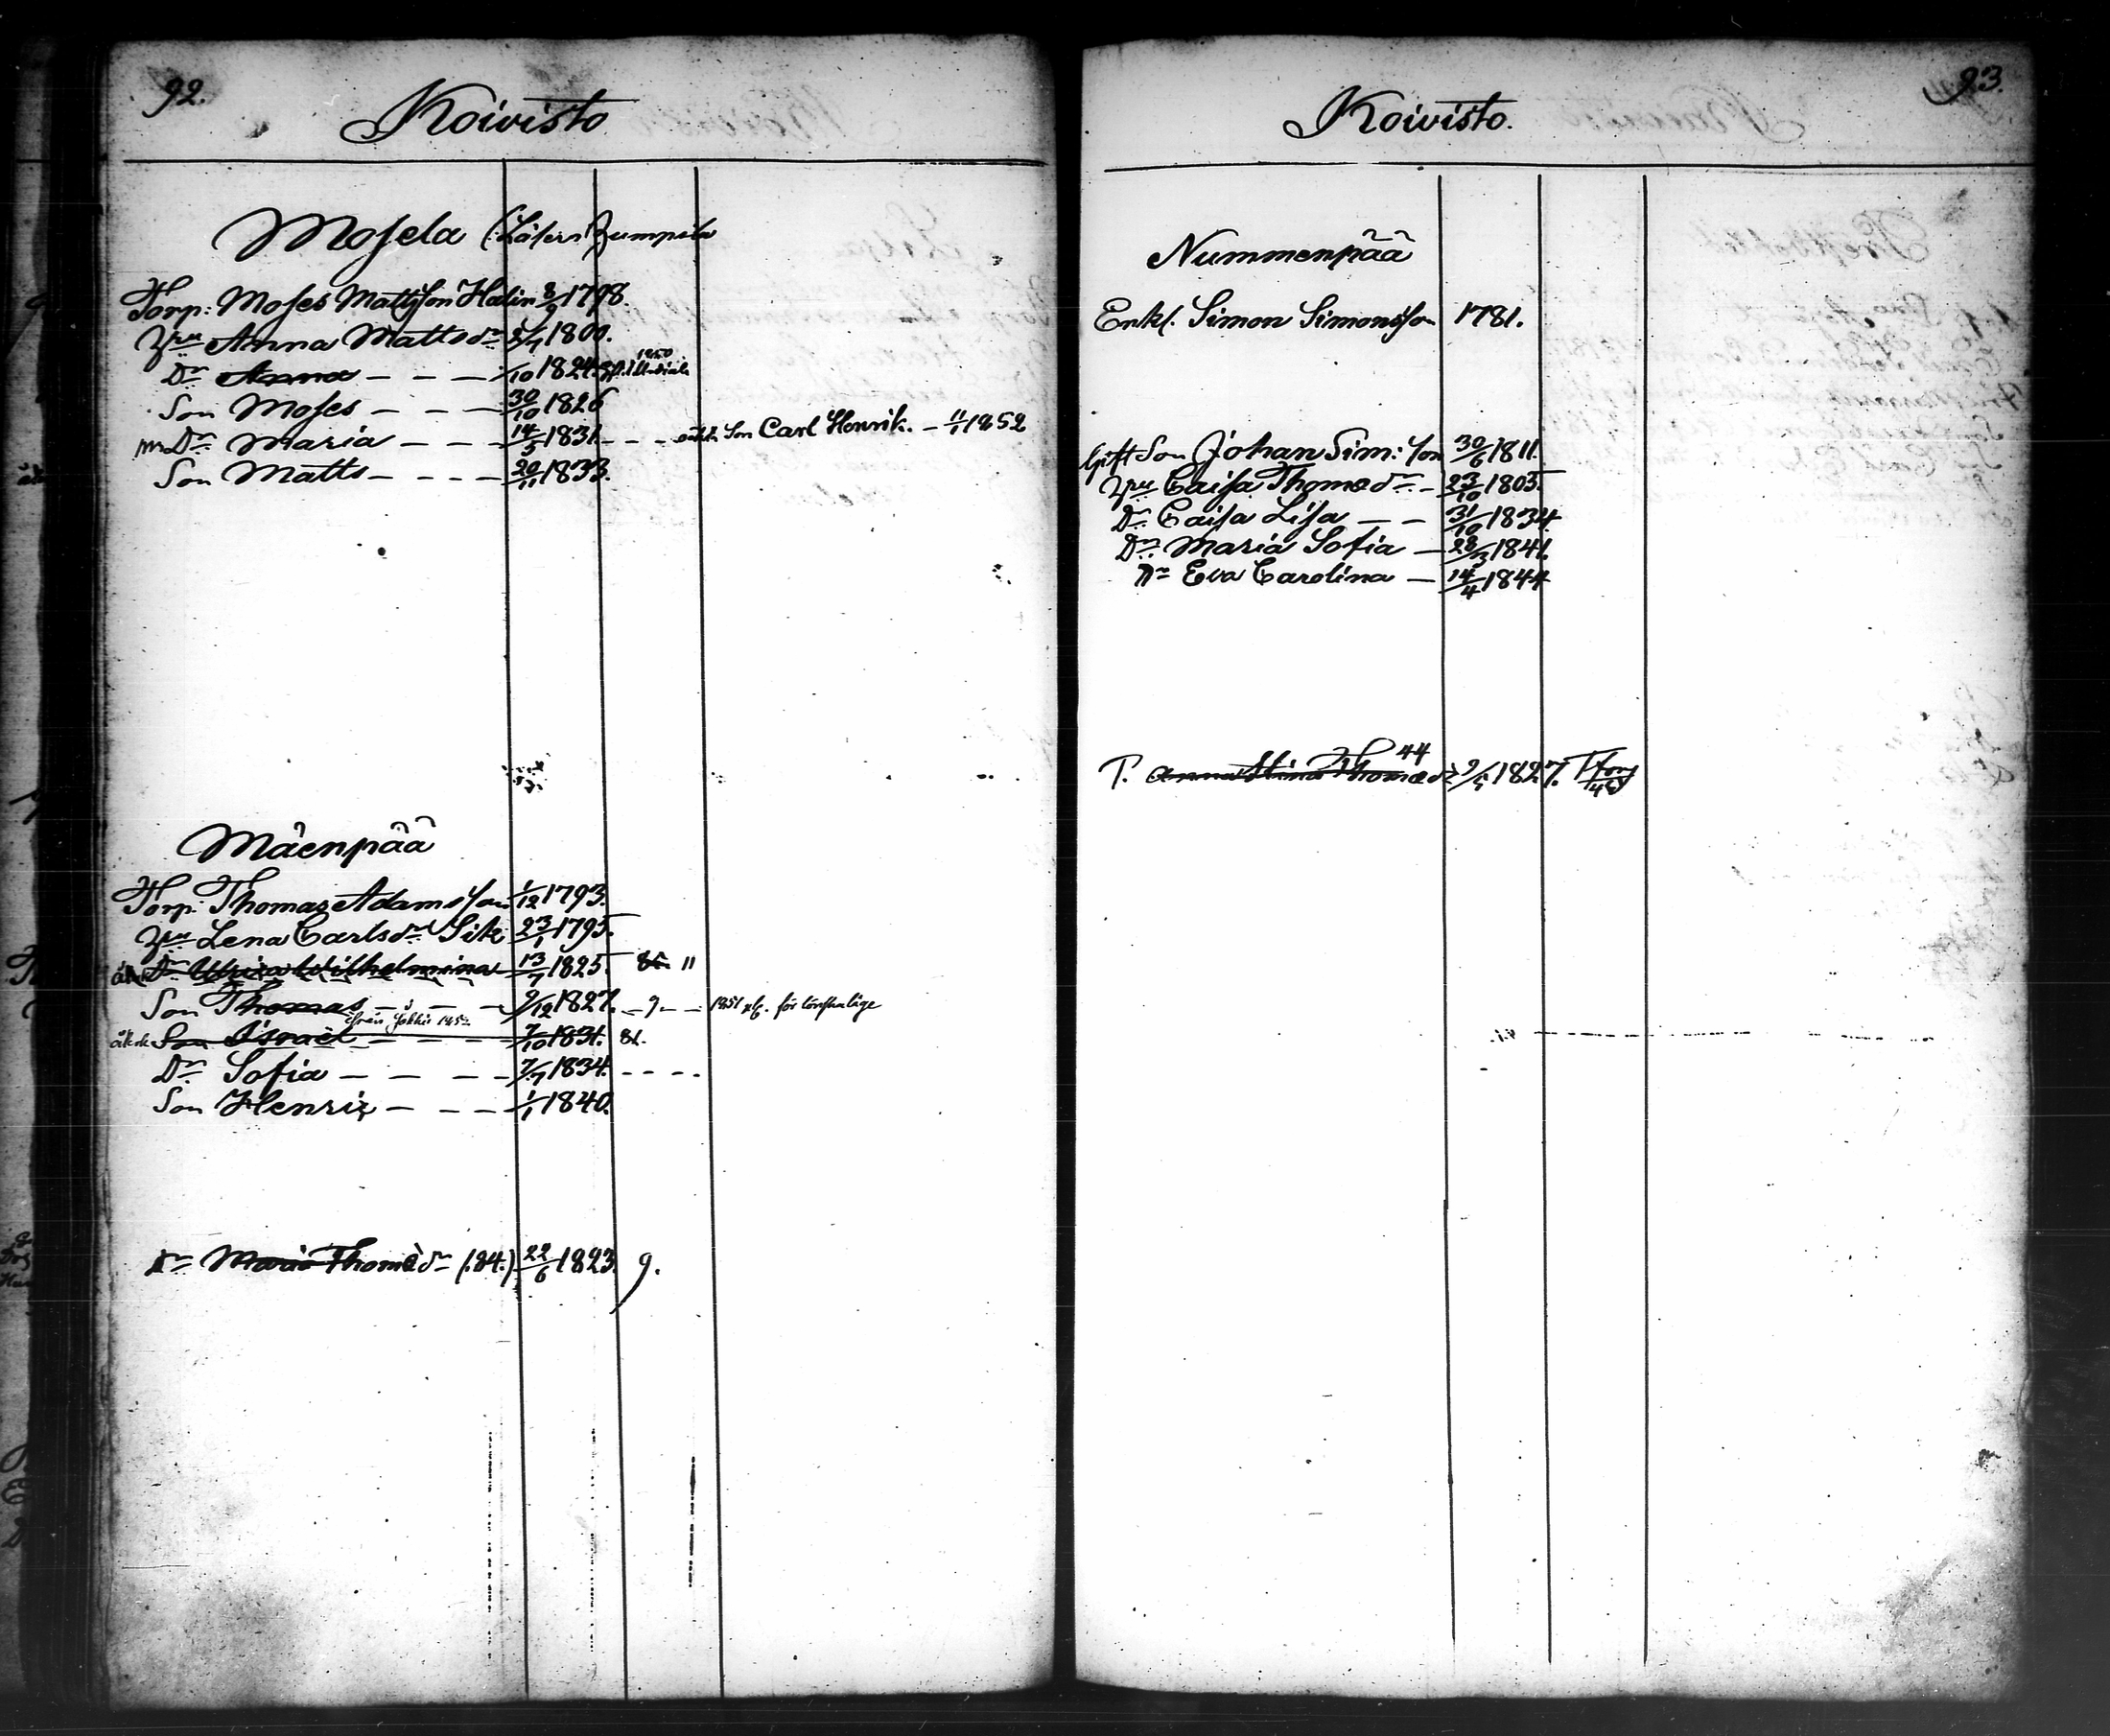 92.
Koivisto
Mosela (: Läsers Zumpila
Torp: Moses Mattsson Halin 8/9 1798.
Hru Anna Mattsdr 2/1 1800.
Dr Anna — — — /10 1824. 1850
Son Moses — — — 30/10 1826
Dr Maria — — — 14/5 1831. — — — oäkta Son Carl Henrik. — 11/1 1852
Son Matts — — — 20/11 1833.
Mäenpää
Torp: Thomas Adamsson 1/12 1793.
Hru Lena Carlsdr Sik 23/1 1795.
Dr Ulrica Wilhelmina 13/7 1825. 86. 11
Son Thomas — — — 9/12 1827. — 9 — — 1851 för lönskaläge
från Jokkis 1852
Son Isràel — — — 7/10 1831. 81.
Dr Sofia — — — 7/7 1834. - - - -
Son Henric — — — 1/1 1840.
Dr Maria Thomædr (84.) 22/6 1823. 9.
93.
Koivisto.
Nummenpää
Enkl. Simon Simonsson 1781.
Gift Son Johan Sim: son 30/6 1811.
Hru Caisa Thomædr — 23/10 1805.
Dr Caisa Lisa — — 31/10 1834.
Dr Maria Sofia — 28/3 1841.
Dr Eva Carolina — 14/4 1844
44
P. Anna Stina Thomædr 9/5 1827.